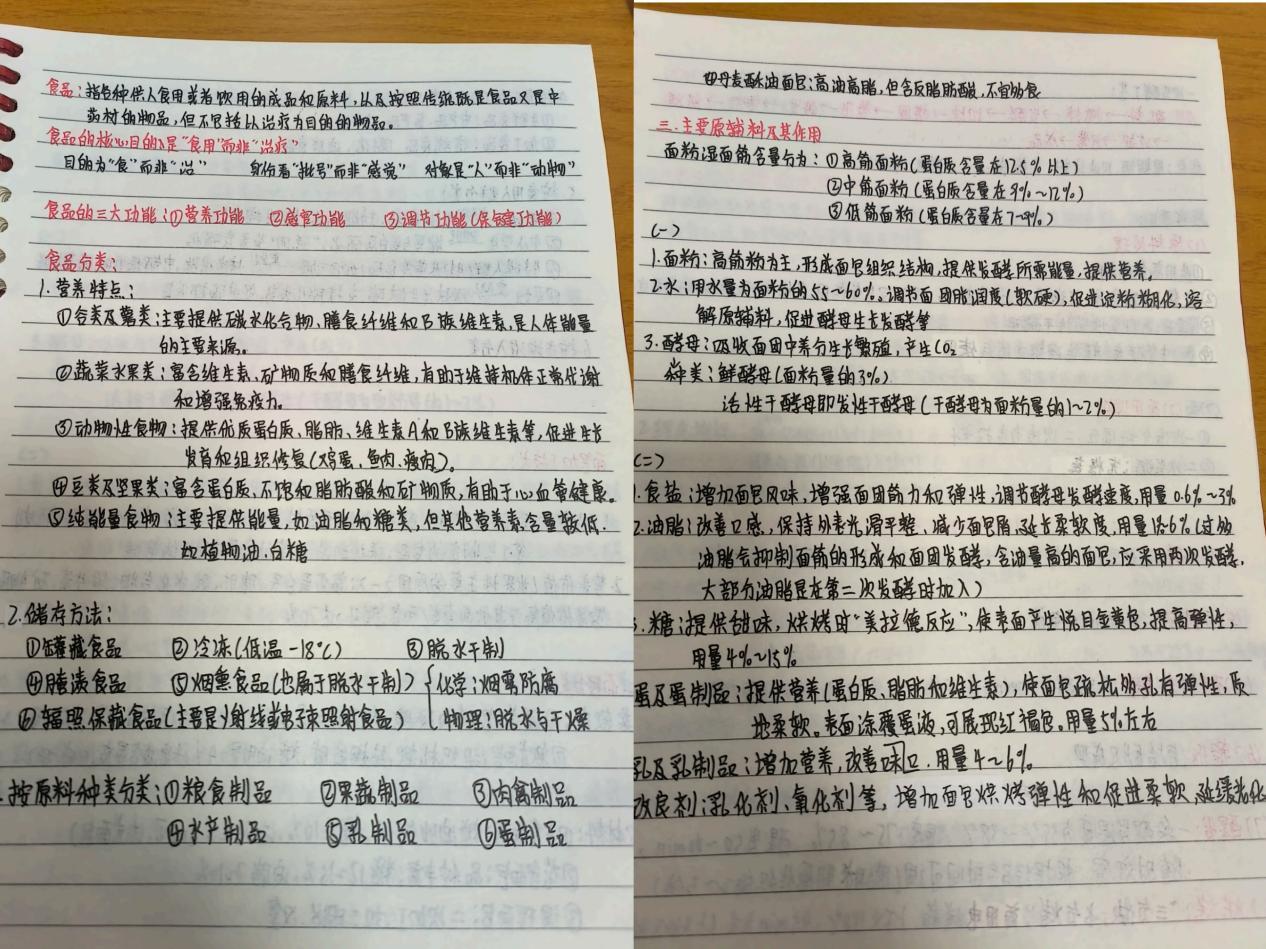 食品：指各种供人食用或者饮用的成品和原料，以及按照传统既是食品又是中
药材的物品，但不包括以治疗为目的的物品。
食品的核心目的是"食用"而非"治疗"
目的为"食"而非"治" 身份看"批号"而非"感觉" 对象是"人"而非"动物"
食品的三大功能：①营养功能 ②感官功能 ③调节功能(保健功能)
食品分类：
1.营养特点：
①谷类及薯类：主要提供碳水化合物、膳食纤维和B族维生素，是人体能量
的主要来源。
②蔬菜水果类：富含维生素、矿物质和膳食纤维，有助于维持机体正常代谢
和增强免疫力。
③动物性食物：提供优质蛋白质、脂肪、维生素A和B族维生素等，促进生长
发育和组织修复(鸡蛋、鱼肉、瘦肉)。
④豆类及坚果类：富含蛋白质、不饱和脂肪酸和矿物质，有助于心血管健康。
⑤纯能量食物：主要提供能量，如油脂和糖类，但其他营养素含量较低.
如植物油.白糖
2.储存方法：
①罐藏食品 ②冷冻(低温-18℃) ③脱水干制
④腌渍食品 ⑤烟熏食品(也属于脱水干制) {化学：烟雾防腐
⑥辐照保藏食品(主要是γ射线或电子束照射食品) 物理：脱水与干燥
.按原料种类分类：①粮食制品 ②果蔬制品 ③肉禽制品
④水产制品 ⑤乳制品 ⑥蛋制品
④丹麦酥油面包：高油高脂，但含反脂肪酸，不宜多食
三.主要原辅料及其作用
面粉湿面筋含量分为：①高筋面粉(蛋白质含量在12.5%以上)
②中筋面粉(蛋白质含量在9%~12%)
③低筋面粉(蛋白质含量在7~9%)
(一)
1.面粉：高筋粉为主，形成面包组织结构，提供发酵所需能量，提供营养。
2.水：用水量为面粉的55~60%。调节面团胀润度(软硬)，促进淀粉糊化，溶
解原辅料，促进酵母生长发酵等
3.酵母：吸收面团中养分生长繁殖，产生CO₂
种类：鲜酵母(面粉量的3%)
活性干酵母即发性干酵母(干酵母为面粉量的1~2%)
(二)
1.食盐：增加面包风味，增强面团筋力和弹性，调节酵母发酵速度，用量0.6%~3%
2.油脂：改善口感，保持外表光滑平整、减少面包屑、延长柔软度，用量1~6%(过多
油脂会抑制面筋的形成和面团发酵，含油量高的面包，应采用两次发酵，
大部分油脂是在第二次发酵时加入)
3.糖：提供甜味，烘烤时"美拉德反应"，使表面产生悦目金黄色，提高弹性，
用量4%~15%
蛋及蛋制品：提供营养(蛋白质、脂肪和维生素)，使面包疏松多孔有弹性，质
地柔软。表面涂覆蛋液，可展现红褐色。用量5%左右
乳及乳制品：增加营养，改善味口.用量4~6%
改良剂：乳化剂、氧化剂等，增加面包烘烤弹性和促进柔软、延缓老化